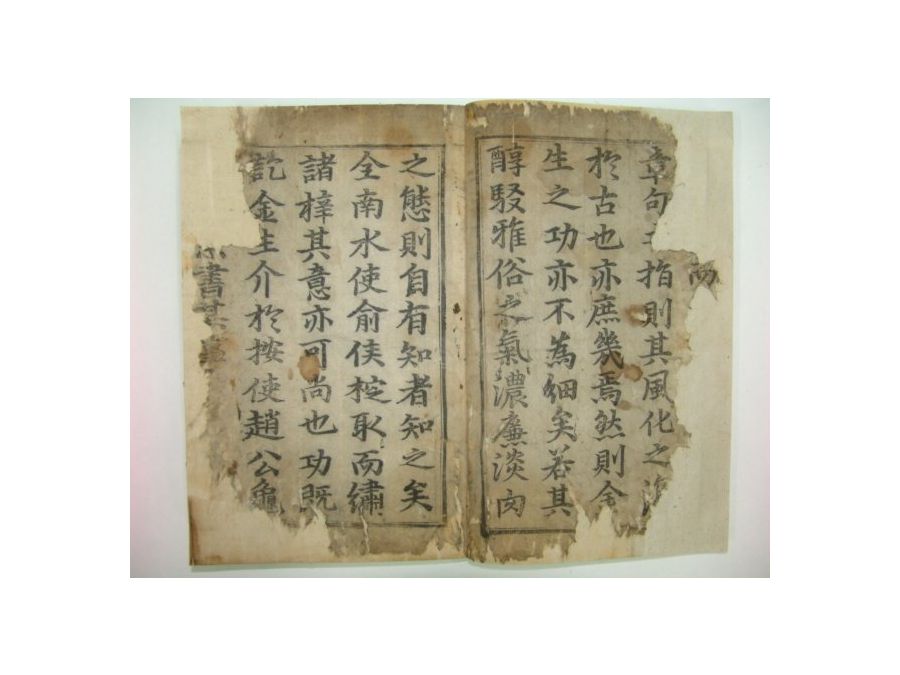 而
章句之指則其風化之
於古也亦庶幾焉然則金
生之功亦不為細矣若其
醇駁雅俗之氣濃廉淡肉
之態則自有知者知之矣
全南水使俞侯㮨取而繡
諸梓其意亦可尚也功既
訖金生介於按使趙公龜
書其